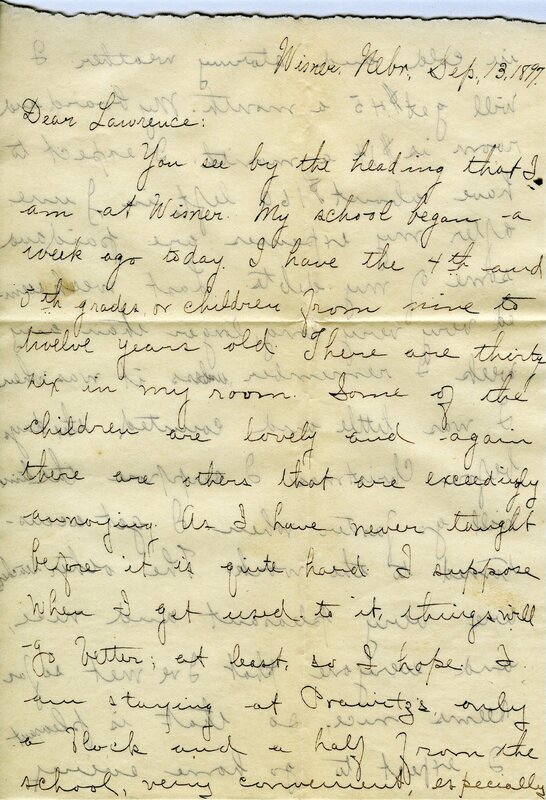 Wisner, Nebr, Sep. 13, 1897.
Dear Lawrence:
You see by the heading that I
am at Wisner. My school began a
week ago today. I have the 4th and
5th grades, or children from nine to
twelve years old. There are thirty
six in my room. Some of the
children are lovely and again
there are others that are exceedingly
annoying. As I have never taught
before it is quite hard. I suppose
when I get used to it, things will
go better; at least, so I hope. I
am staying at Prawitz's, only
a block and a half from the
school, very convenient, especially